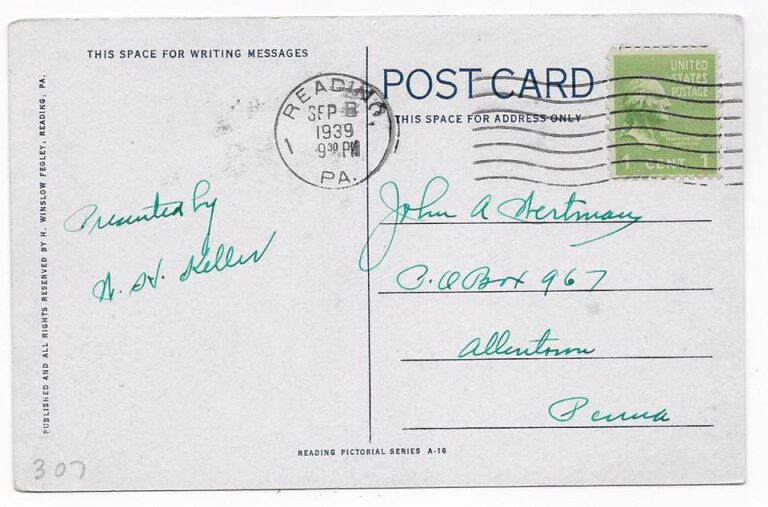 THIS SPACE FOR WRITING MESSAGES
POST CARD
THIS SPACE FOR ADDRESS ONLY
UNITED
STATES
POSTAGE
1 CENT 1
READING,
SEP 8
1939
9 30 PM
PA.
Presented by
N. H. Keller
John A Hertman
P. O Box 967
Allentown
Penna
PUBLISHED AND ALL RIGHTS RESERVED BY H. WINSLOW FEGLEY, READING, PA.
READING PICTORIAL SERIES A-16
307